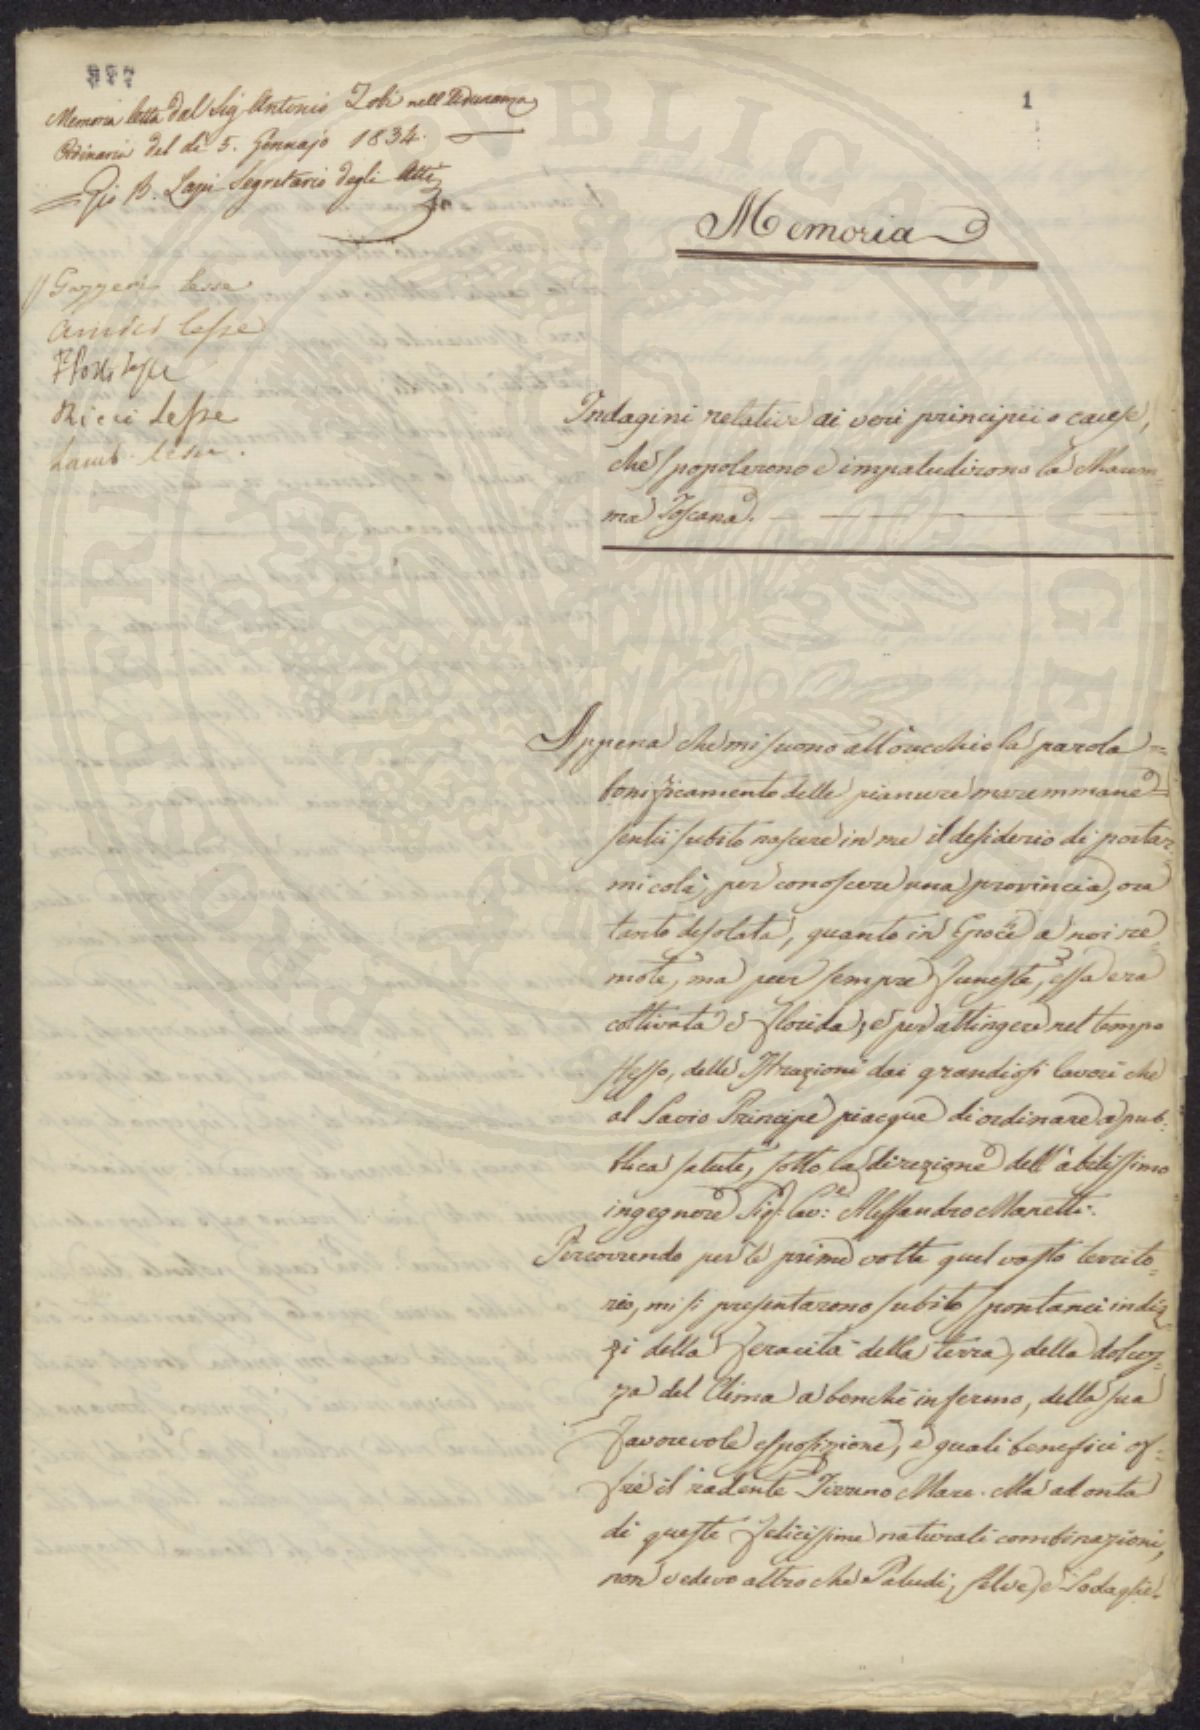 Memoria letta dal Sig Antonio Zobi nell'Adunanza
Ordinaria del dì 5. Gennajo 1834.
Gio B. Lapi Segretario degli Atti
1
Memoria
Gazzeri lesse
Amici lesse
Ricci Lesse
Indagini relative ai veri principii o cause,
che spopolarono e impaludirono la Marem-
ma Toscana.
Appena che mi suonò all'orecchio la parola =
bonificamento delle pianure maremmane =
sentii subito nascere in me il desiderio di portar-
mi colà, per conoscere una provincia, ora
tanto desolata, quanto in Epoche a noi re-
mote, ma pur sempre funeste, essa era
coltivata e florida; e per attingere nel tempo
stesso, delle Istruzioni dai grandiosi lavori che
al Savio Principe piacque di ordinare a pub-
blica salute, sotto la direzione dell'abilissimo
ingegnere Sig: Cav: Alessandro Manetti.
Percorrendo per le prime volte quel vasto territo-
rio, mi si presentarono subito spontanei indiz-
zi della feracità della terra, della dolcez-
za del Clima a benchè infermo, della sua
favorevole esposizione, e quali beneficii of-
fre il radente Tirreno Mare. Ma ad onta
di queste felicissime naturali combinazioni,
non vedevo altro che Paludi, selve, e Sodaglie.